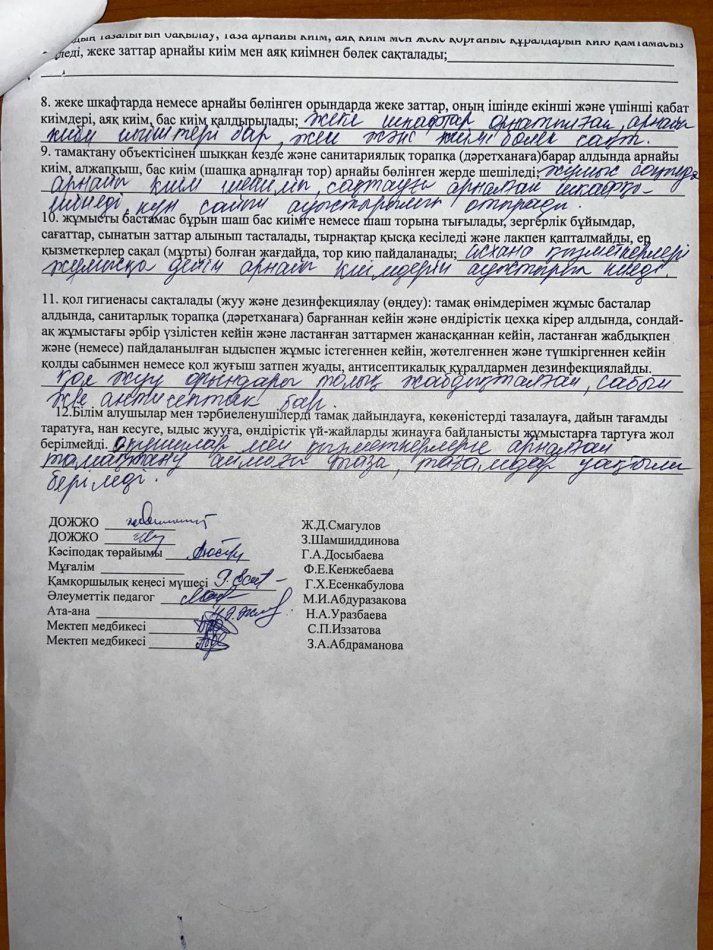 тазалығын бақылау, таза арнайы киім, аяқ киім мен жеке қорғаныс құралдарын кию қамтамасыз
жеке заттар арнайы киім мен аяқ киімнен бөлек сақталады;
8. жеке шкафтарда немесе арнайы бөлінген орындарда жеке заттар, оның ішінде екінші және үшінші қабат
киімдері, аяқ киім, бас киім қалдырылады; жеке шкафтар орнатылған, арнайы
киім ілгіштері бар, жеке және киімі бөлек сақт.
9. тамақтану объектісінен шыққан кезде және санитариялық торапқа (дәретханаға)барар алдында арнайы
киім, алжапқыш, бас киім (шашқа арналған тор) арнайы бөлінген жерде шешіледі; жұмыс
арнайы киім сақтауға арналған
күн сайын ауыстырылып отырады.
10. жұмысты бастамас бұрын шаш бас киімге немесе шаш торына тығылады, зергерлік бұйымдар,
сағаттар, сынатын заттар алынып тасталады, тырнақтар қысқа кесіледі және лакпен қапталмайды, ер
қызметкерлер сақал (мұрты) болған жағдайда, тор кию пайдаланады; асхана қызметкерлері
жұмысқа дейін арнайы киімдерін ауыстырып киеді.
11. қол гигиенасы сақталады (жуу және дезинфекциялау (өңдеу): тамақ өнімдерімен жұмыс басталар
алдында, санитарлық торапқа (дәретханаға) барғаннан кейін және өндірістік цехқа кірер алдында, сондай-
ақ жұмыстағы әрбір үзілістен кейін және ластанған заттармен жанасқаннан кейін, ластанған жабдықпен
және (немесе) пайдаланылған ыдыспен жұмыс істегеннен кейін, жөтелгеннен және түшкіргеннен кейін
қолды сабынмен немесе қол жуғыш затпен жуады, антисептикалық құралдармен дезинфекциялайды.
Қол жуу орындары толық жабдықталған, сабын
және антисептик бар.
12.Білім алушылар мен тәрбиеленушілерді тамақ дайындауға, көкөністерді тазалауға, дайын тағамды
таратуға, нан кесуге, ыдыс жууға, өндірістік үй-жайларды жинауға байланысты жұмыстарға тартуға жол
берілмейді. Оқушылар мен қызметкерлерге арналған
тамақтану аймағы таза, тағамдар уақтылы
беріледі.
ДОЖЖО Ж.Д.Смагулов
ДОЖЖО З.Шамшиддинова
Кәсіподақ төрайымы Г.А.Досыбаева
Мұғалім Ф.Е.Кенжебаева
Қамқоршылық кеңесі мүшесі Г.Х.Есенкабулова
Әлеуметтік педагог М.И.Абдуразакова
Ата-ана Н.А.Уразбаева
Мектеп медбикесі С.П.Иззатова
Мектеп медбикесі З.А.Абдраманова